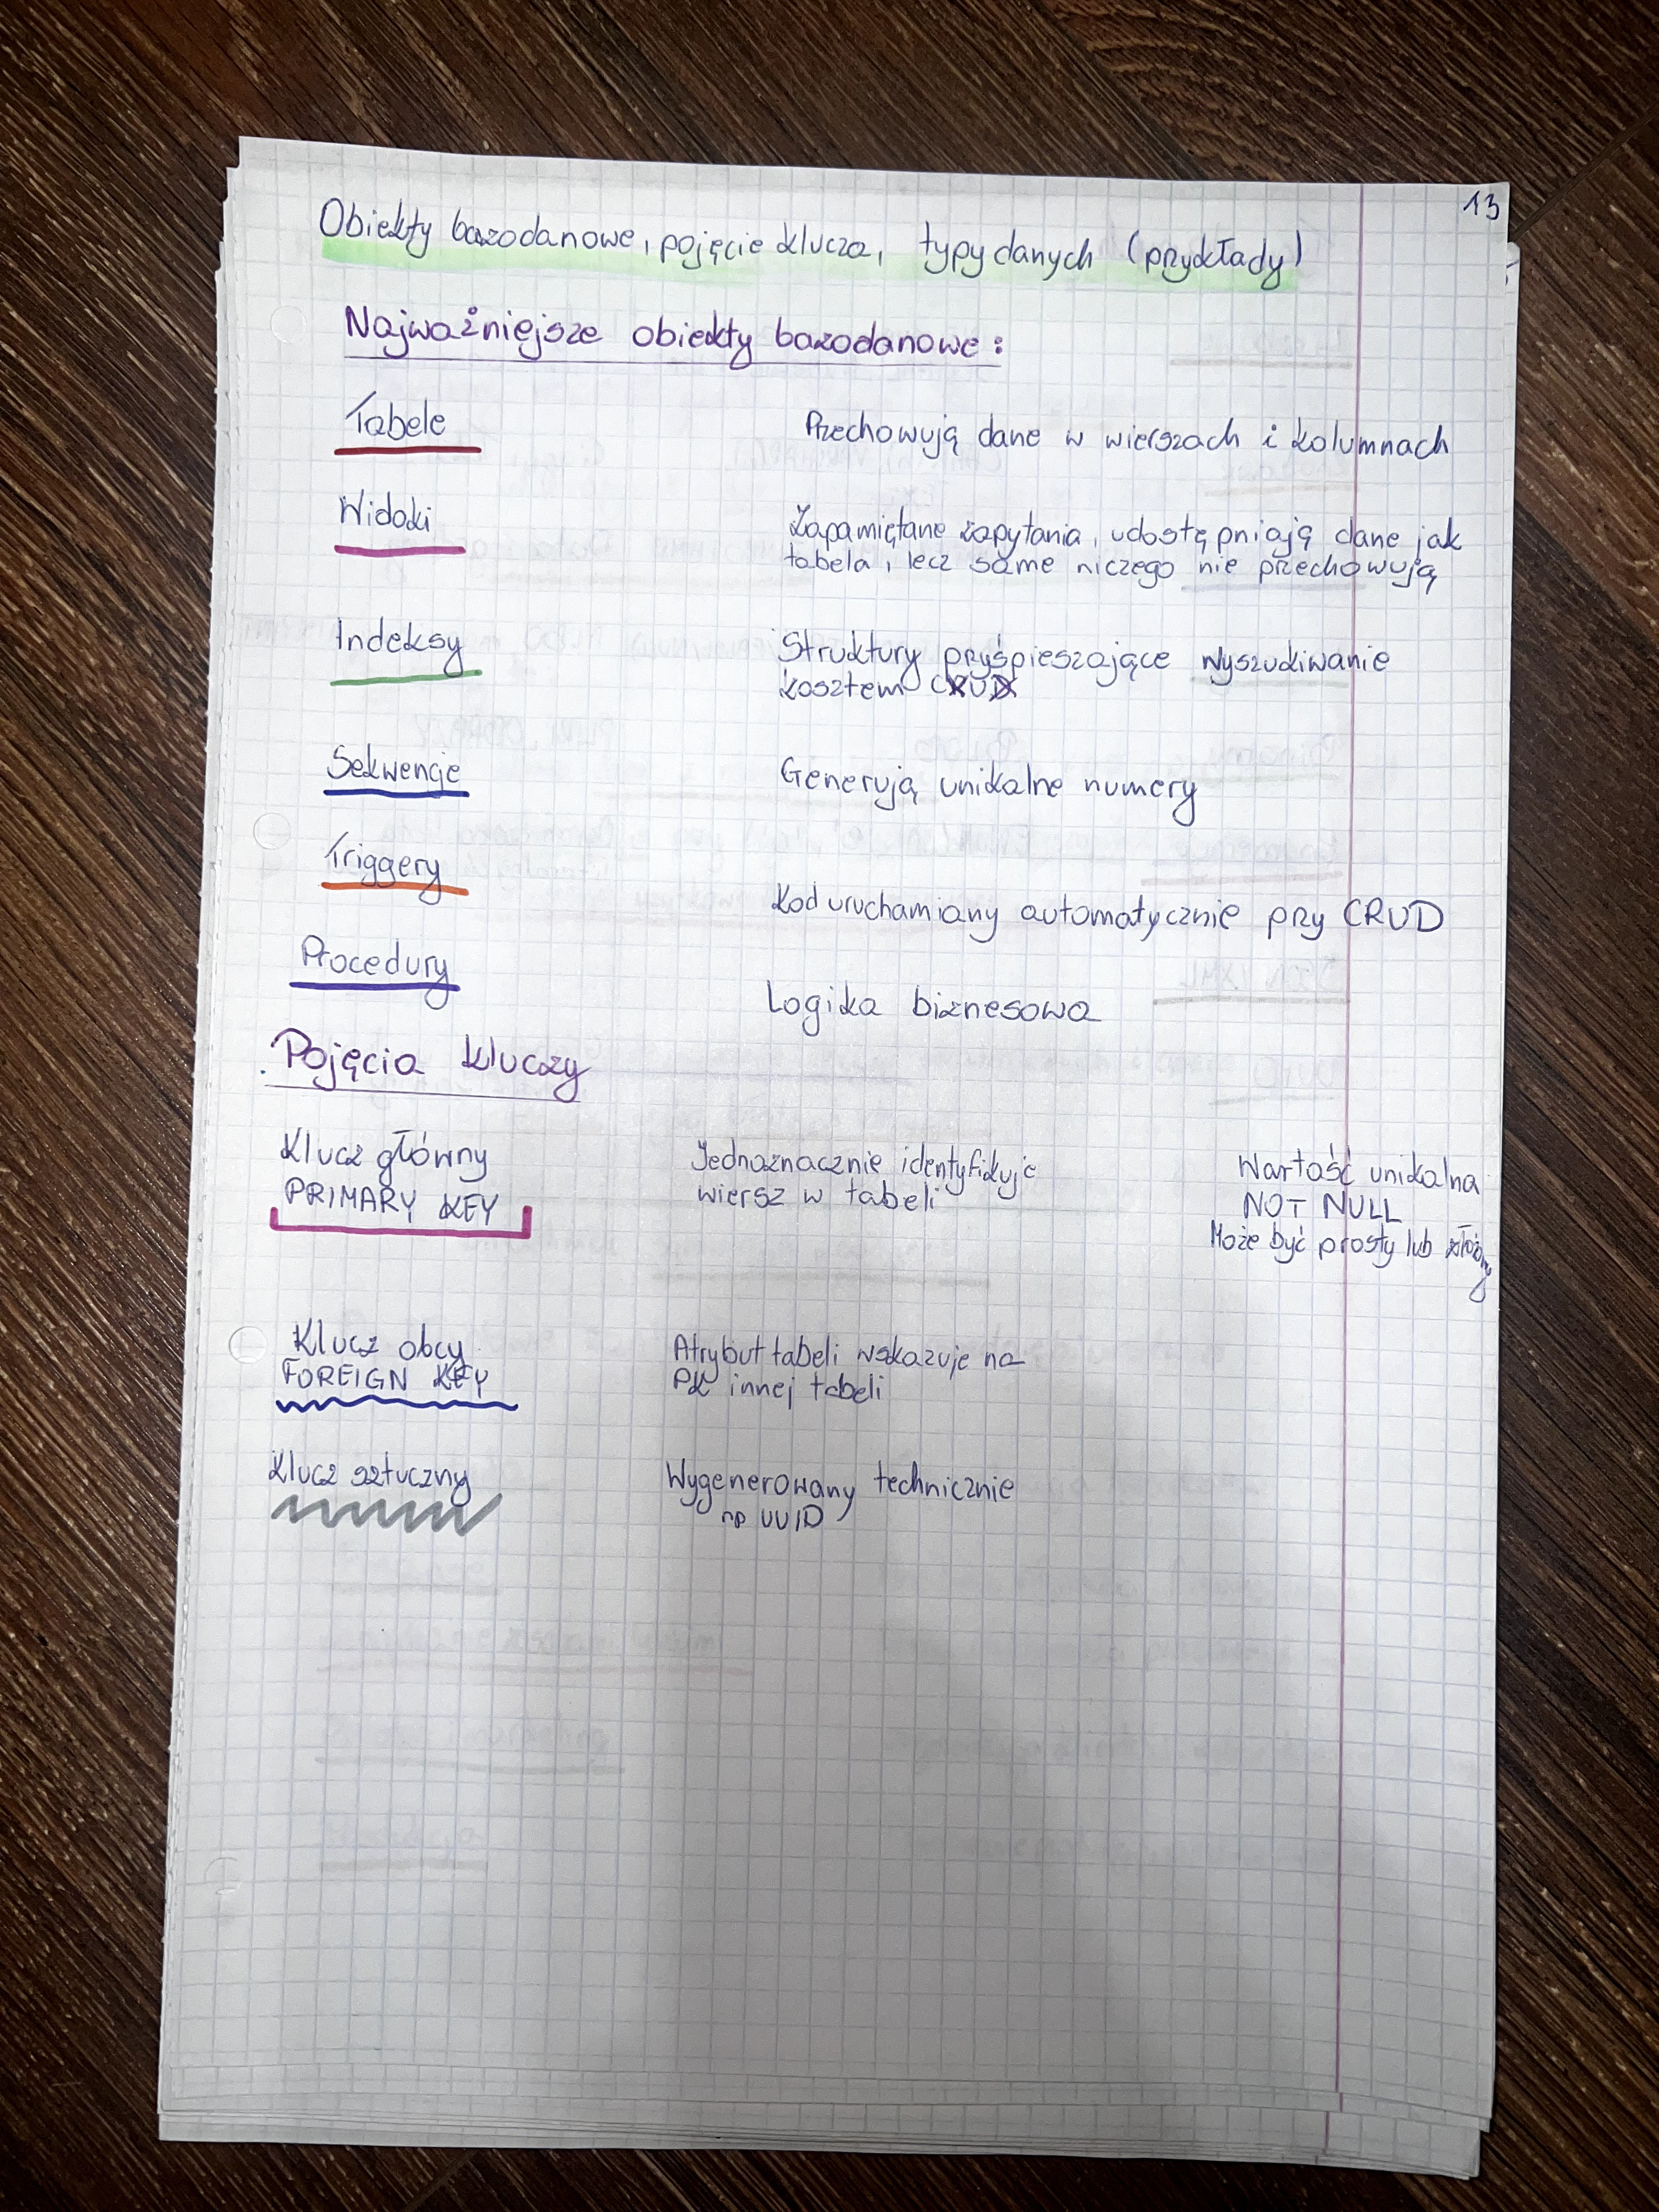 13
Obiekty bazodanowe, pojęcie klucza, typy danych (przykłady)
Najważniejsze obiekty bazodanowe:
Tabele
Przechowują dane w wierszach i kolumnach
Widoki
Zapamiętane zapytania, udostępniają dane jak
tabela, lecz same niczego nie przechowują
Indeksy
Struktury pryśpieszające wyszukiwanie
kosztem CRUD
Sekwencje
Generują unikalne numery
Triggery
Kod uruchamiany automatycznie przy CRUD
Procedury
Logika biznesowa
Pojęcia kluczy
Klucz główny
PRIMARY KEY
Jednoznacznie identyfikuje
wiersz w tabeli
Wartość unikalna
NOT NULL
Może być prosty lub złożony
Klucz obcy
FOREIGN KEY
Atrybut tabeli wskazuje na
PK innej tabeli
Klucz sztuczny
Wygenerowany technicznie
np UUID